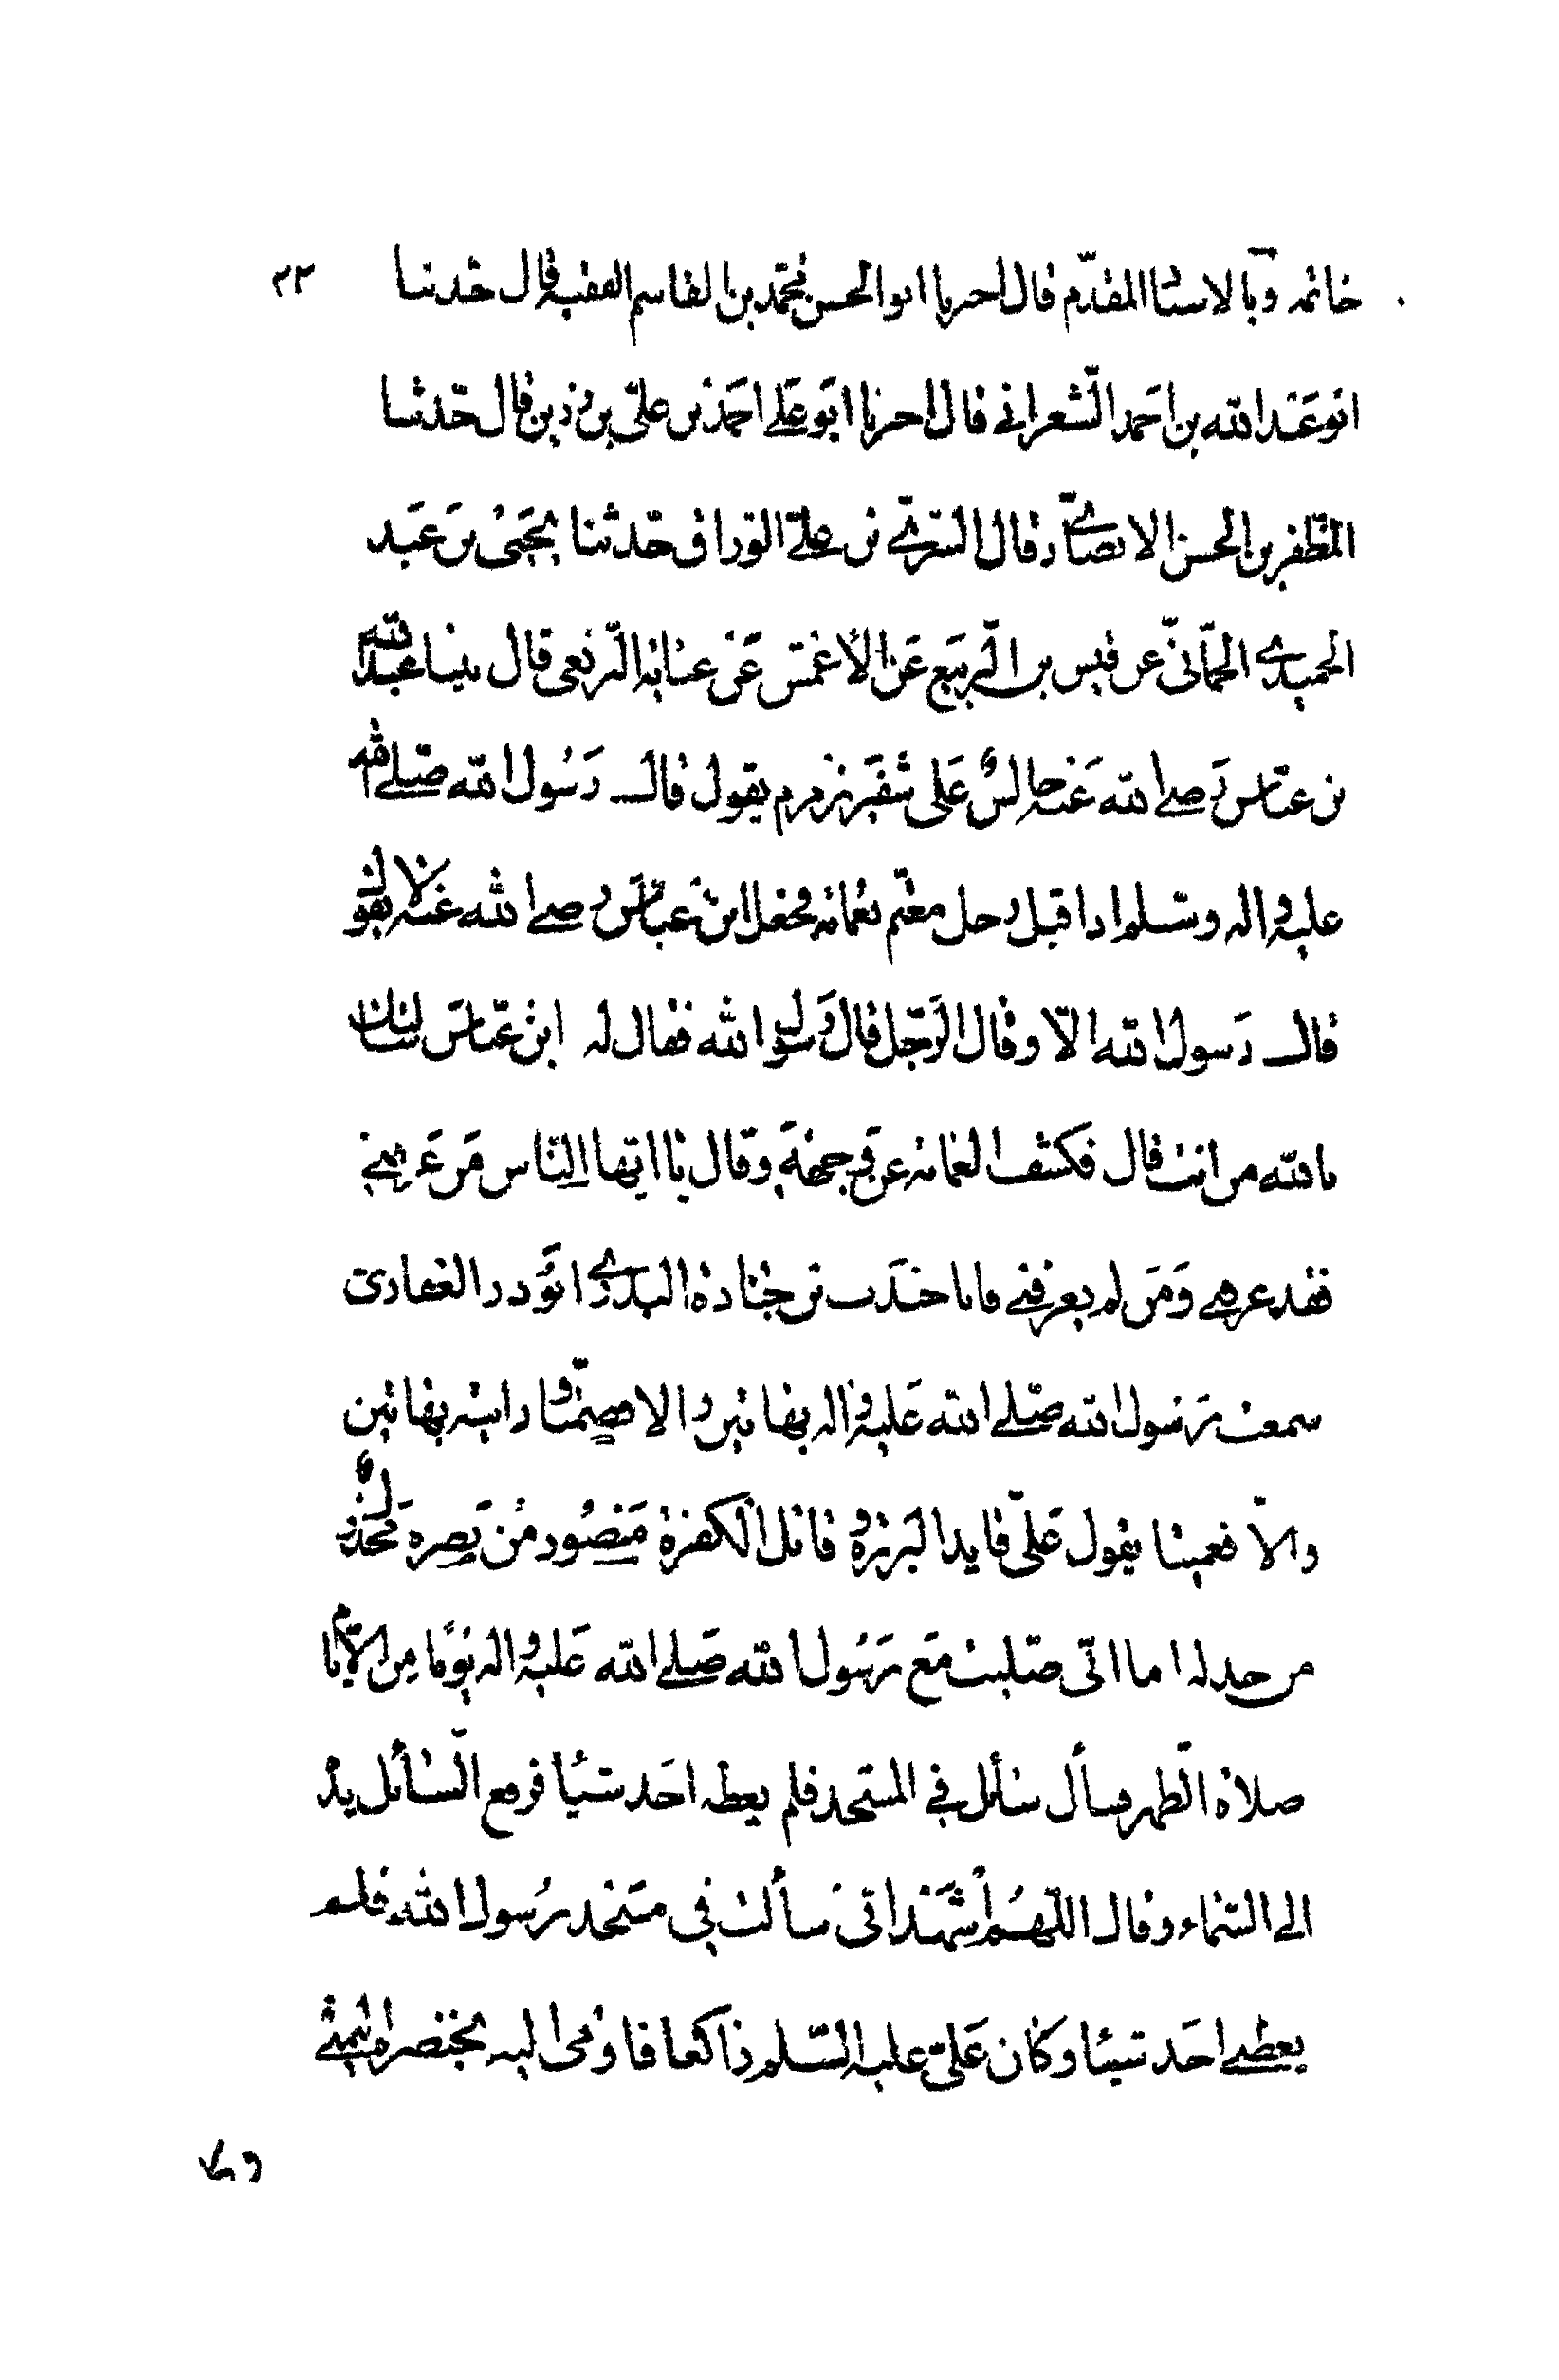 خاتمه وبالاسنا المقدّم قال اخبرنا ابوالحسن محمّد بن القاسم الفقيه قال حدثنا ٢٣
ابو عبد الله بن احمد الشعراني قال اخبرنا ابو علي احمد بن علي بن رزين قال حدثنا
المظفر بن الحسن الانصاري قال السري بن علي الوراق حدثنا يحيى بن عبد
الحميد الحمّاني عن قيس بن الربيع عن الأعمش عن عباية الربعي قال بينا عبد الله
بن عباس رضي الله عنه جالس على شفير زمزم يقول قال رسول الله صلى الله
عليه واله وسلم اذا قبل رجل معتم بعمامة فجعل ابن عباس رضي الله عنه لا يقول
قال رسول الله الا وقال الرجل قال رسول الله فقال له ابن عباس سألتك
بالله من انت قال فكشف العمامة عن وجهه وقال يا ايها الناس من عرفني
فقد عرفني ومن لم يعرفني فانا جندب بن جنادة البدري ابو ذر الغفاري
سمعت رسول الله صلى الله عليه واله بهاتين والا صمتا ورايته بهاتين
والا فعميتا يقول علي قايد البررة وقاتل الكفرة منصور من نصره مخذول
من خذله اما اني صليت مع رسول الله صلى الله عليه واله يوما من الأيام
صلاة الظهر فسأل سائل في المسجد فلم يعطه احد شيئا فرفع السائل يده
الى السماء وقال اللهم أشهد اني سألت في مسجد رسول الله فلم
يعطني احد شيئا وكان علي عليه السلم راكعا فاومى اليه بخنصره اليمنى
وكا